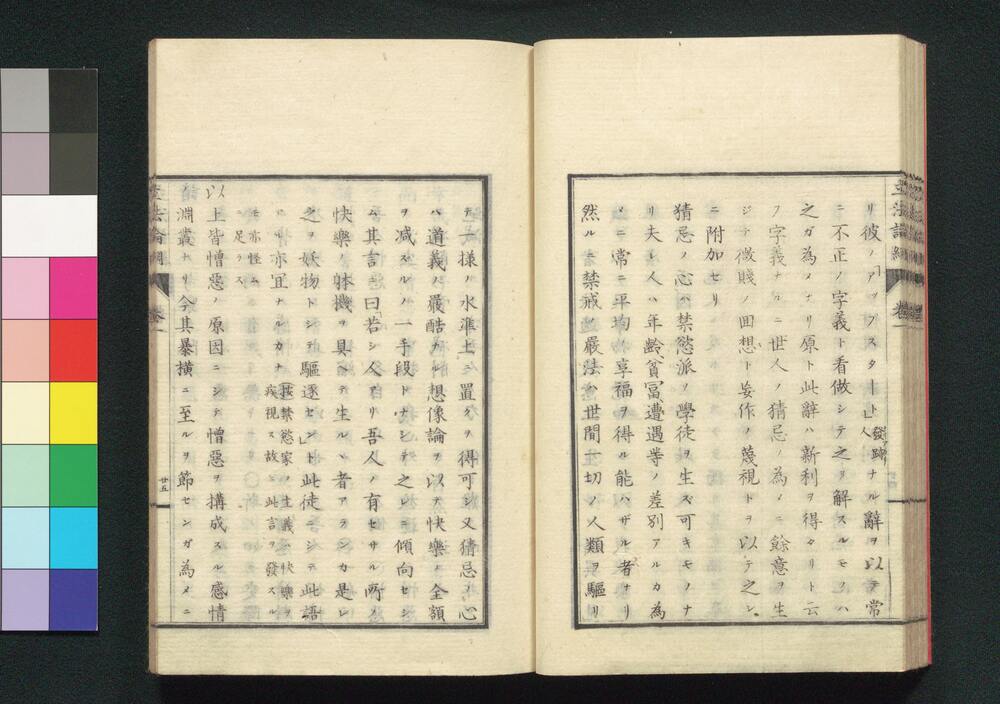 リ彼ノ「アップスタート」人發跡ナル辭ヲ以テ常
ニ不正ノ字義ト看做シテ之ヲ解スルモノハ
之ガ為メナリ原ト此辭ハ新利ヲ得タリト云
フ字義ナルニ世人ノ猜忌ノ為メニ餘意ヲ生
ジテ微賤ノ回想ト妄作ノ蔑視トヲ以テ之レ
ニ附加セリ
猜忌ノ心ハ禁慾派ノ學徒ヲ生ズ可キモノナ
リ夫レ人ハ年齡貧冨遭遇等ノ差別アルカ為
メニ常ニ平均ノ享福ヲ得ル能ハザル者ナリ
然ルニ禁戒ノ嚴法ハ世間一切ノ人類ヲ驅リ
立法論綱 卷一
テ一様ノ水準上ニ置クヲ得可シ又猜忌ノ心
ハ道義ノ嚴酷ナル想像論ヲ以テ快樂ノ全額
ヲ减スルノ一手段トナシテ之レニ傾向セシ
ム其言ニ曰「若シ人アリ吾人ノ有セサル所ノ
快樂ノ躰機ヲ具ヘテ生ルヽ者アランカ是レ
之ヲ妖物トシテ驅逐セン」ト此徒ニシテ此語
アル亦宜ナルカナ
按禁慾家ノ主義ハ快樂ヲ
疾視ス故ニ此言ヲ發スル
モ亦怪ム
ニ足ラス
以上皆憎惡ノ原因ニシテ憎惡ヲ搆成スル感情
淵叢ナリ今其暴横ニ至ルヲ節センガ為メニ
立法論綱 卷一 廿五